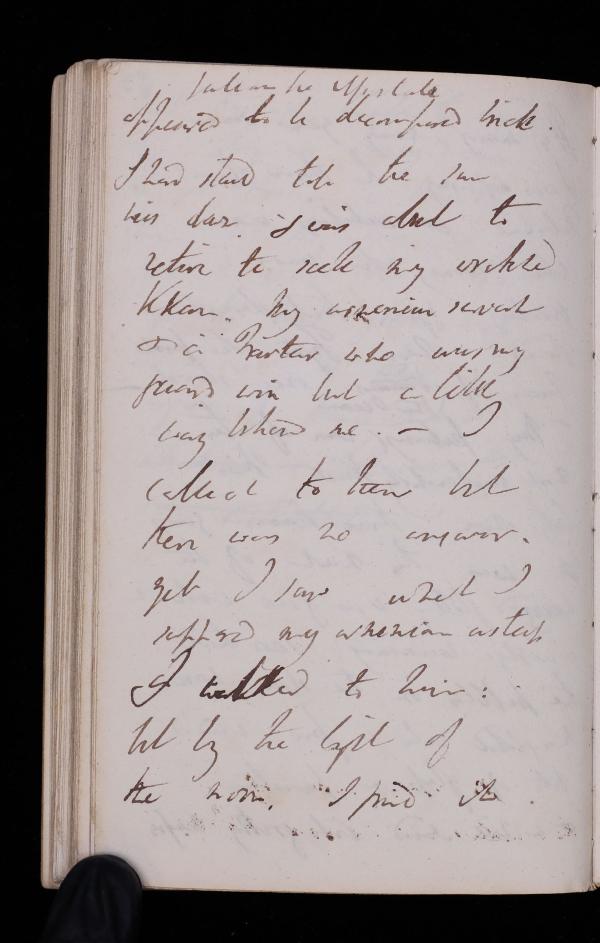 appeared to be decomposed brick.
I had staid till the sun
was down. I was about to
retire to seek my wretched
Khan. My armenian servant
& a Tartar who was my
guard were but a little
way behind me. — I
called to them but
there was no answer.
yet I saw what I
supposed my armenian asleep
I walked to him:
but by the light of
the moon, I found it